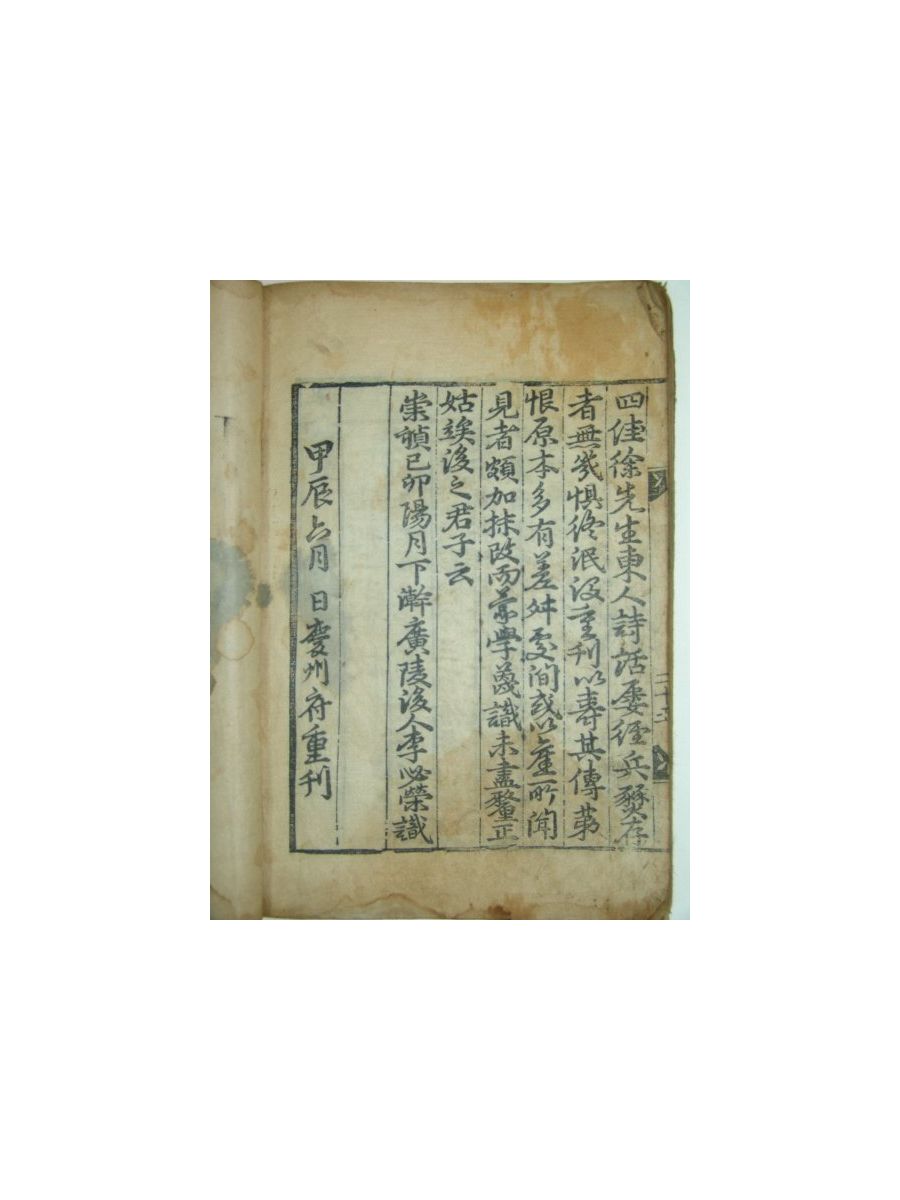 四佳徐先生東人詩話屡經兵燹存
者無幾惧終泯没重刊以壽其傳第
恨原本多有差舛處間或以産所聞
見者頗加抹改而蒙學蔑識未盡釐正
姑竢後之君子云
崇禎己卯陽月下澣廣陵後人李必榮識
甲辰六月 日慶州府重刊